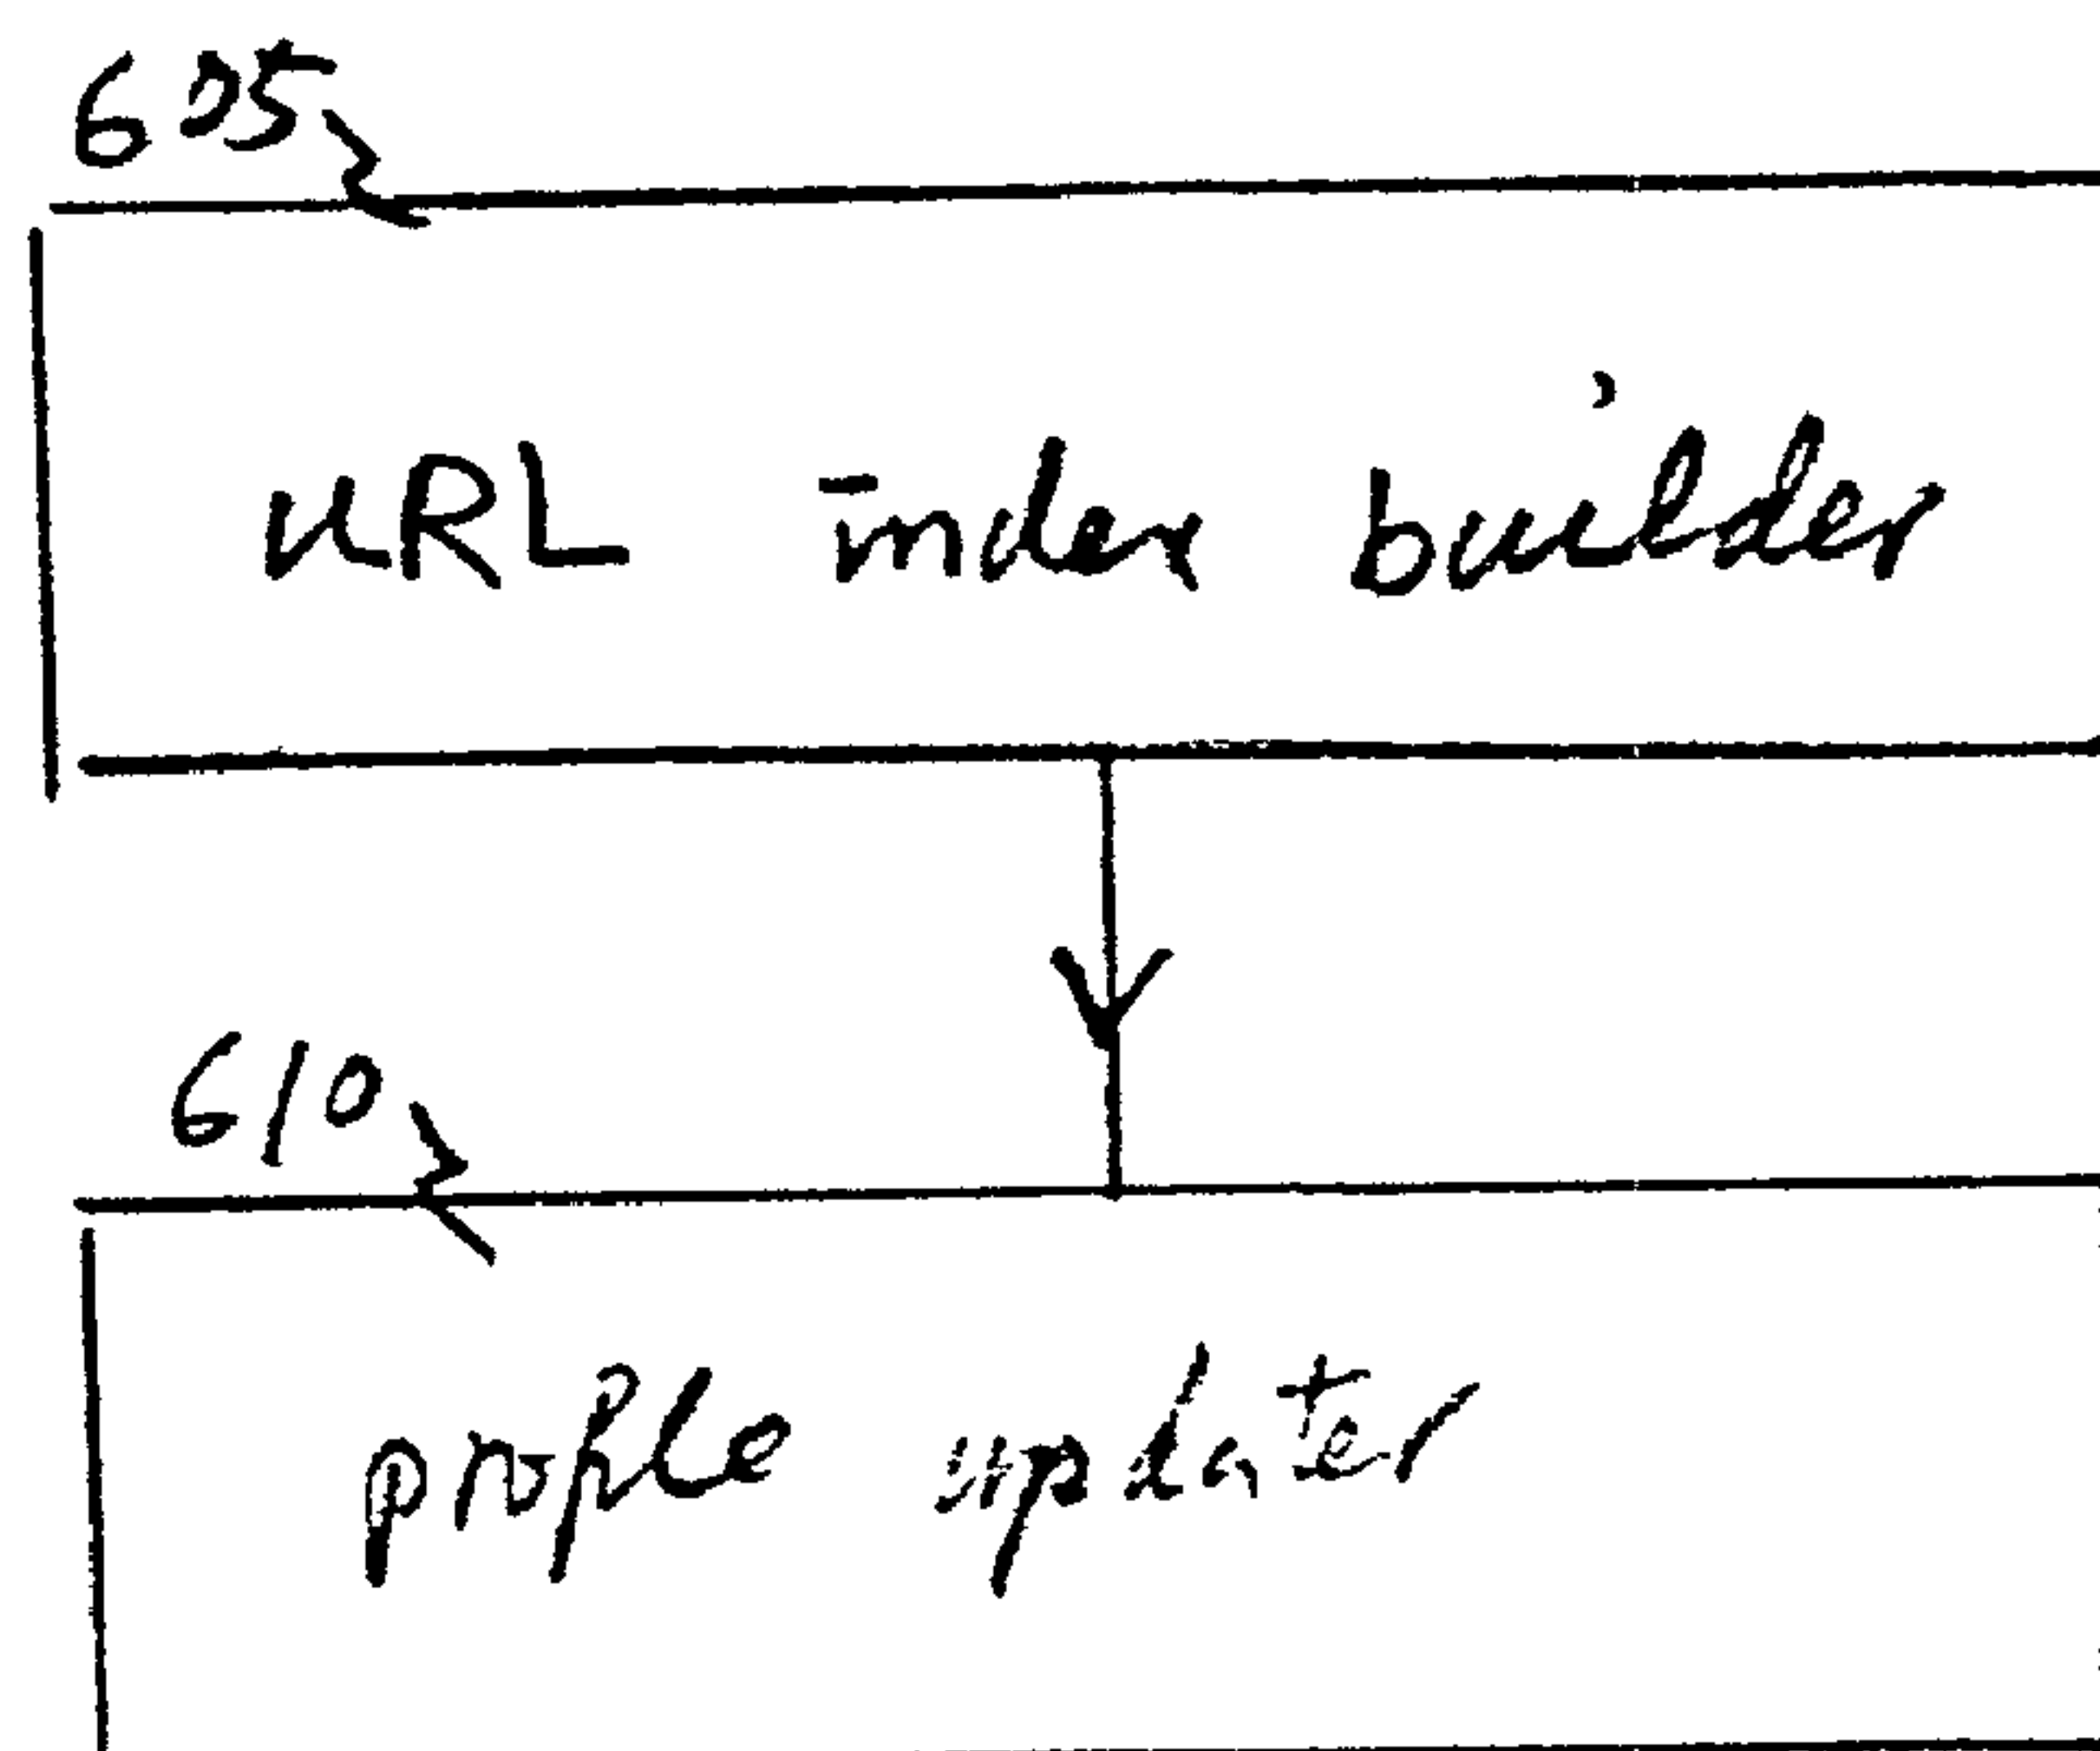 605
URL index builder
610
profile updater